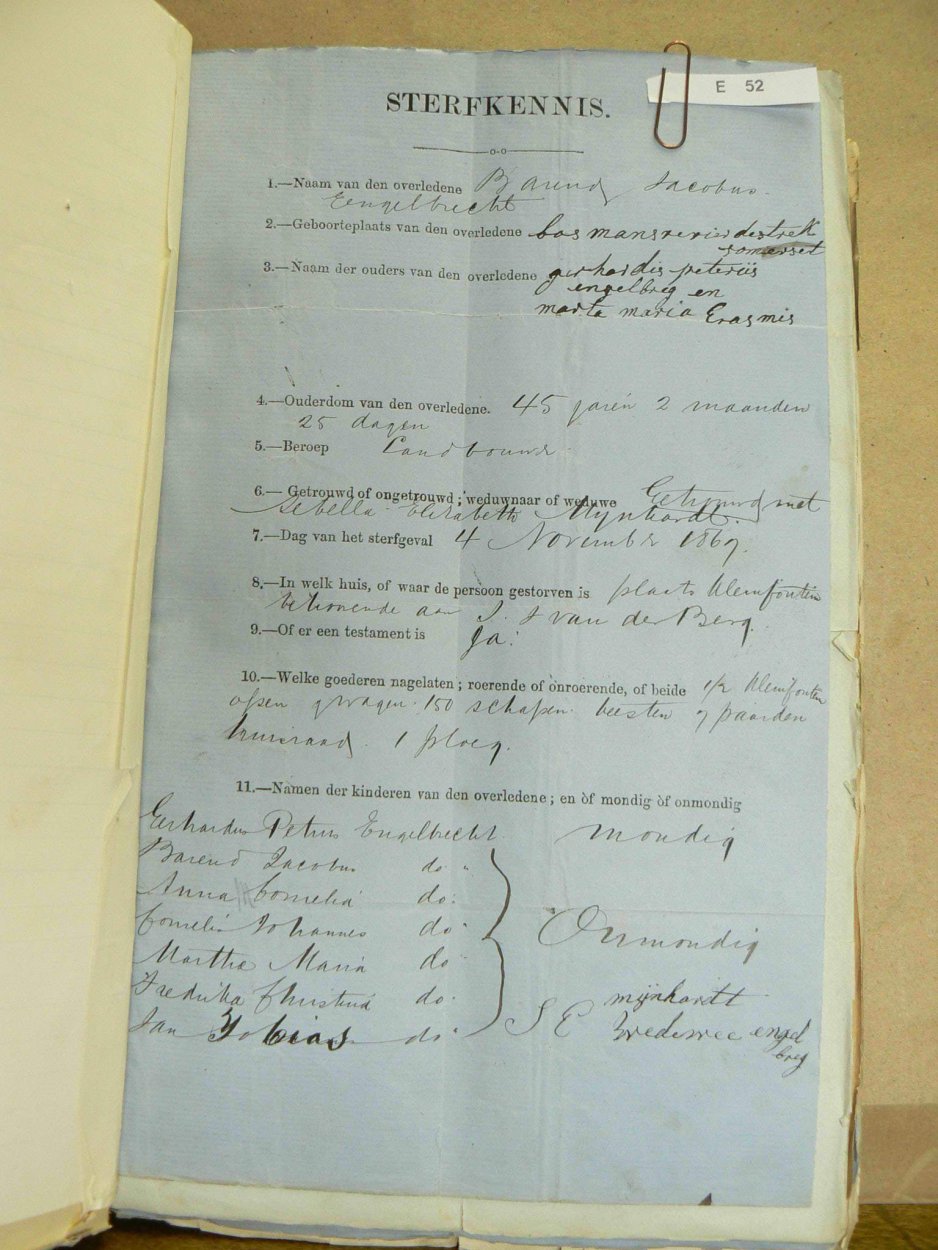 E 52
STERFKENNIS.
1.—Naam van den overledene Barend Jacobus
Engelbrecht
2.—Geboorteplaats van den overledene bosmansrevier destrek
somerset
3.—Naam der ouders van den overledene gerhardis peteriis
engelbreg en
marta maria Erasmis
4.—Ouderdom van den overledene. 45 jaren 2 maanden
25 dagen
5.—Beroep Landbouwer
6.— Getrouwd of ongetrouwd; weduwnaar of weduwe Getrouwd met
Sebella Elizabeth Mynhardt.
7.—Dag van het sterfgeval 4 November 1869.
8.—In welk huis, of waar de persoon gestorven is plaats Kleinfontein
behoorende aan J. J van der Berg.
9.—Of er een testament is Ja.
10.—Welke goederen nagelaten; roerende of onroerende, of beide 1/2 Kleinfontein
ossen wagen 150 schapen beesten paarden
huisraad. 1 ploeg.
11.—Namen der kinderen van den overledene; en òf mondig òf onmondig
Gerhardus Petrus Engelbrecht mondig
Barend Jacobus do
Anna Cornelia do
Cornelis Johannes do Onmondig
Martha Maria do
Fredrika Christina do
Jan Tobias do
S E mijnhardt
wedewee engel
breg